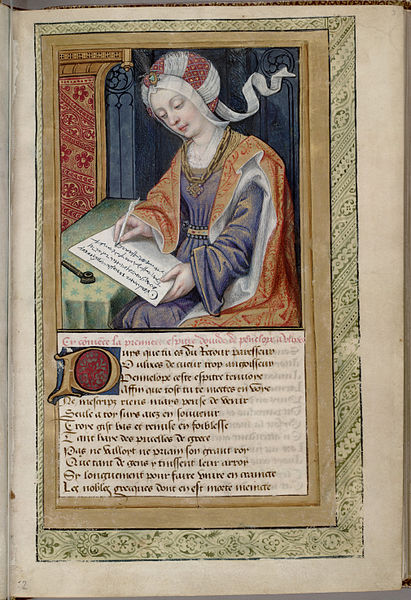 Cy cōmēce la premiere espitre dovide de penelope a ulixes
Puis que tu es du Retour paresseux
O ulixes de cueur trop angoisseux
Pennelope ceste espitre tenvoye
Affin que tost tu te mectes en voye
Ne mescripz riens mais pense de venir
Seule a toy suys aiez en souvenir
Troye gist bas et remise en foiblesse
Tant haye des pucelles de grece
Pas ne valloit ne priam son grant roy
Que tant de gens y tinssent leur arroy
Sy longuement pour faire yuire en craincte
Les nobles grecques dont en est morte